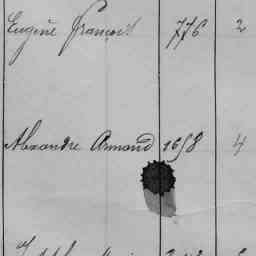 Eugène François 776 2
Alexandre Armand 1658 4